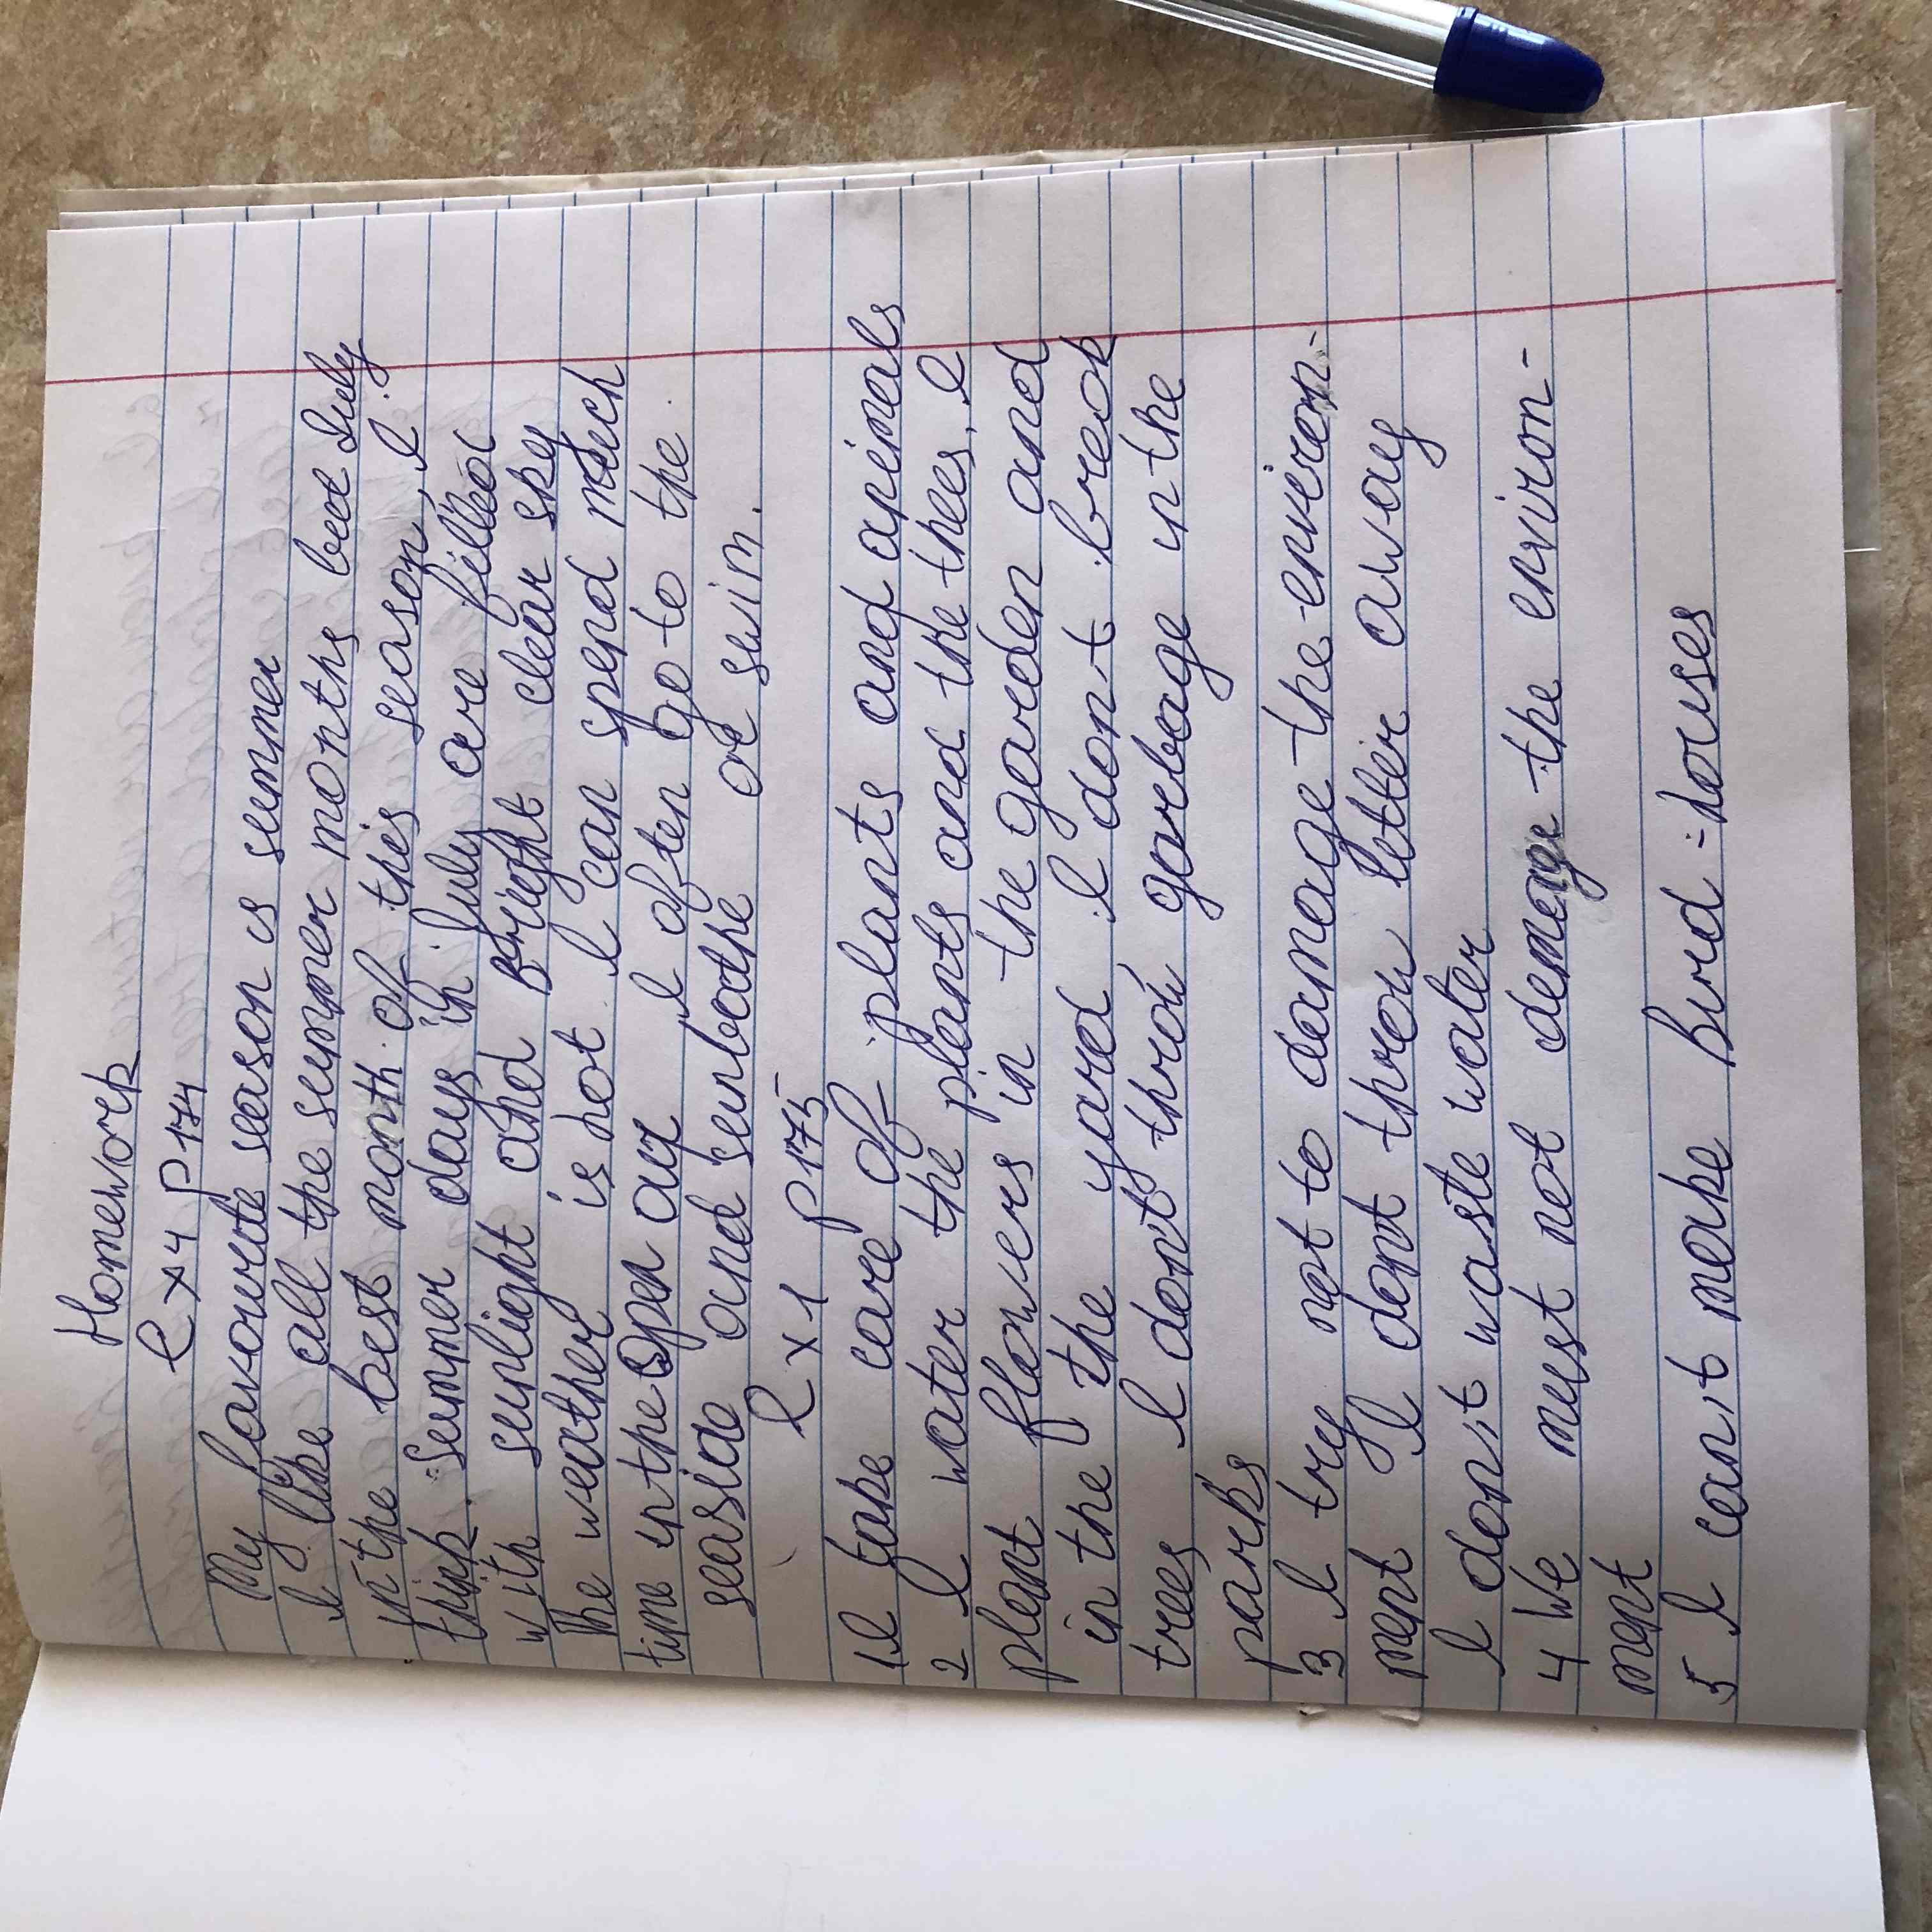 Homework
Ex4 P174
My favourite season is summer
I like all the summer months but July
in the best month of this season, I
think. Summer days in July are filled
with sunlight and Bright clear sky
The weather is hot I can spend much
time in the open air I often go to the
seaside and sunbathe or swim.
Ex1 P175
1 I take care of plants and animals
2 I water the plants and the thees. I
plant flowers in the garden and
in the the yard I don't break
trees I don't throw garbage in the
parks
3 I try not to damage the environ-
ment I dont throw letter away
I don't waste water
4 We must not demage the environ-
ment
5 I can't make Bird-houses